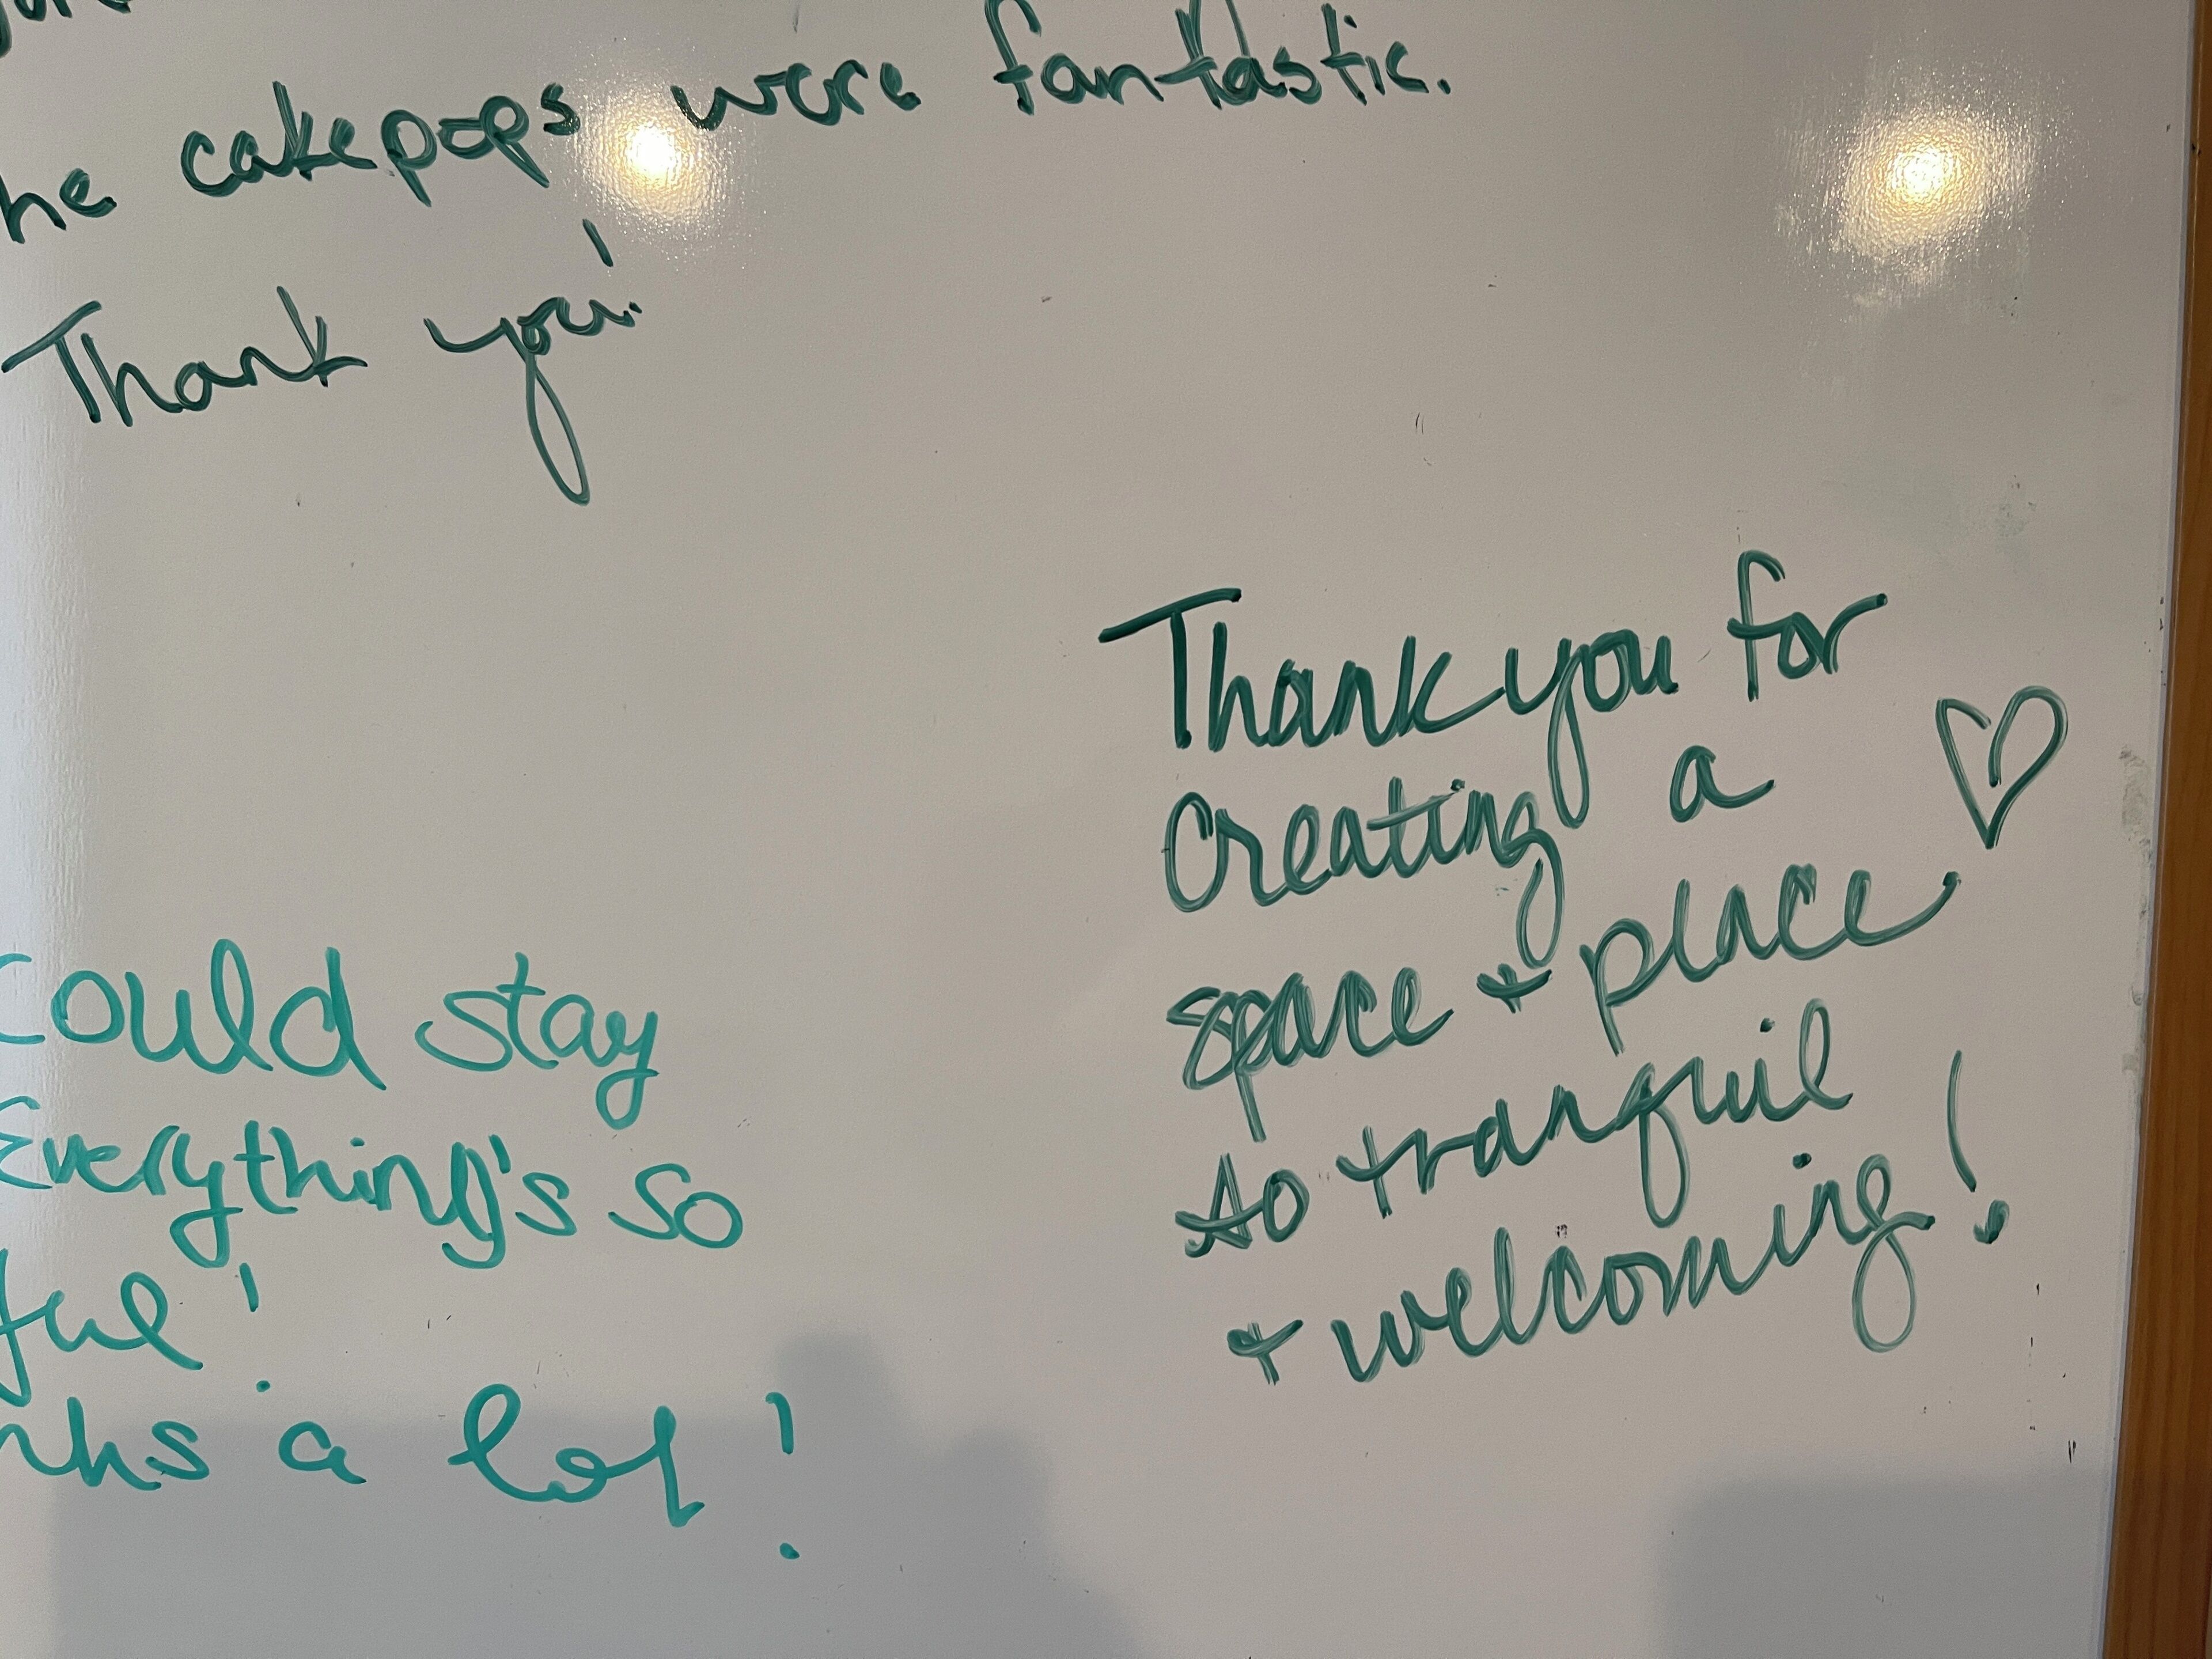 he cakepops were fantastic.
Thank you!
Thank you for
Creating a
space + place
so tranquil
+ welcoming!
could stay
Everything's so
ful!
nks a lot!